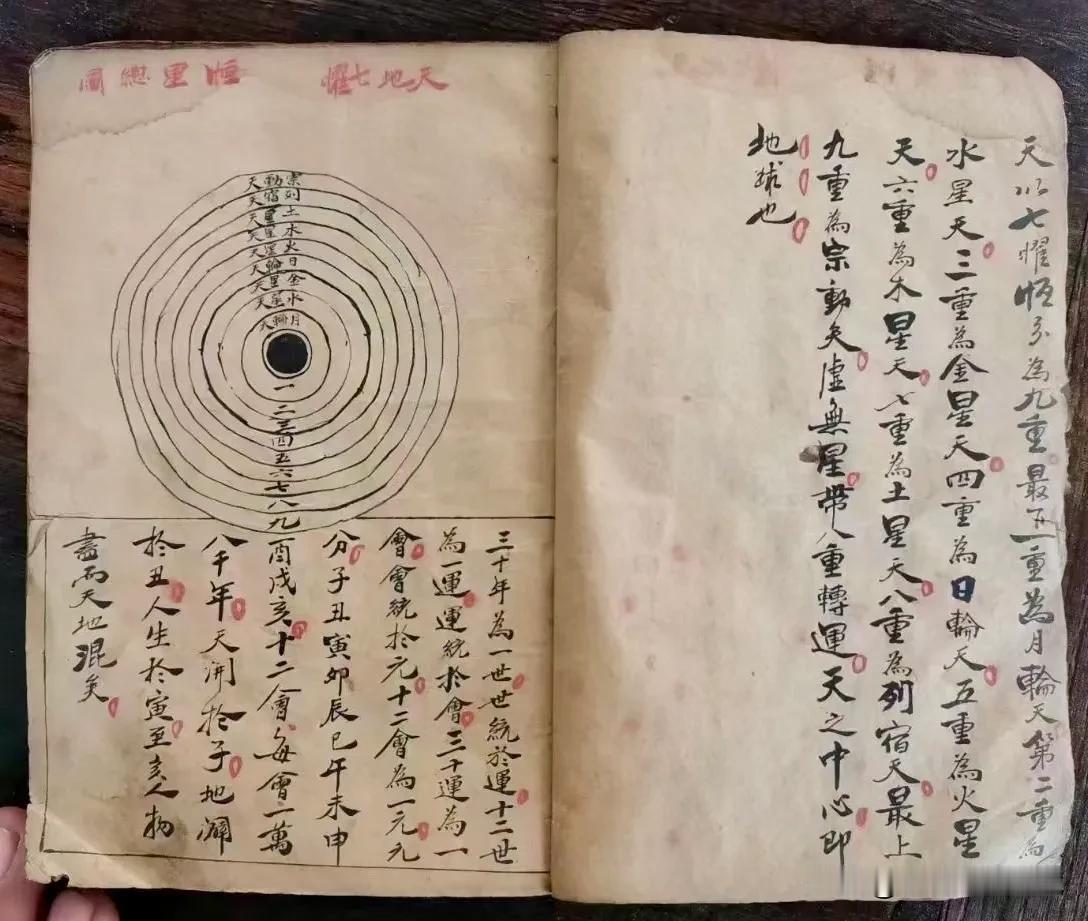 天以七耀恆分為九重最下一重為月輪天第二重為
水星天三重為金星天四重為日輪天五重為火星
天六重為木星天七重為土星天八重為列宿天最上
九重為宗動天虛無星帶八重轉運天之中心即
地球也
天地七耀 恆里總圖
宗動天
列宿天
土星天
水星天
火星天
日輪天
金星天
水星天
月輪天
一
二
三
四
五
六
七
八
九
三十年為一世世統於運十二世
為一運運統於會三十運為一
會會統於元十二會為一元元
分子丑寅卯辰巳午未申
酉戌亥十二會每會一萬
八千年天開於子地闢
於丑人生於寅至亥人物
盡而天地混矣